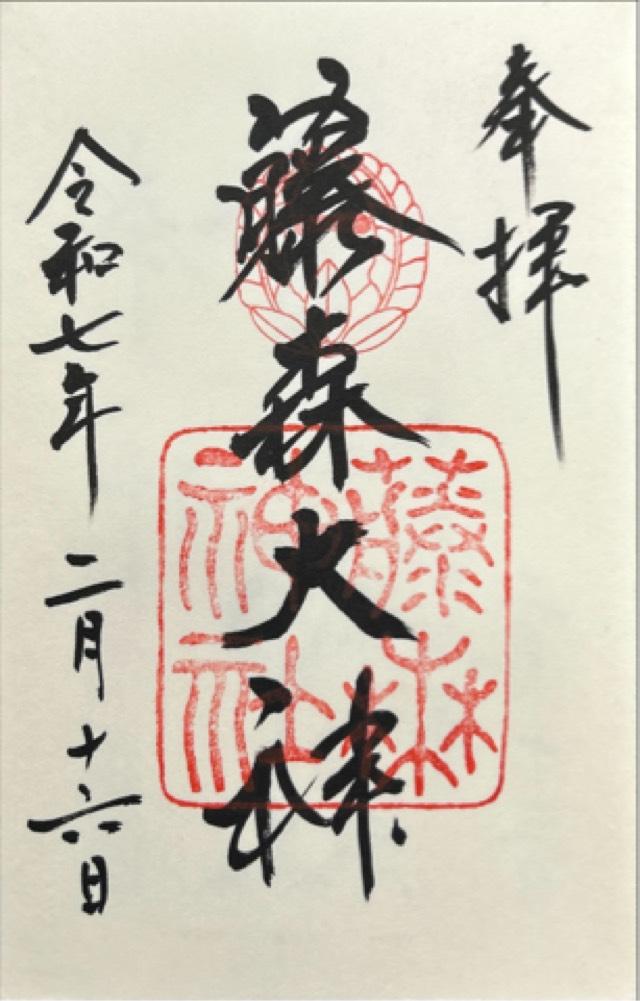 奉拝
藤森大神
藤森神社
令和七年二月十六日